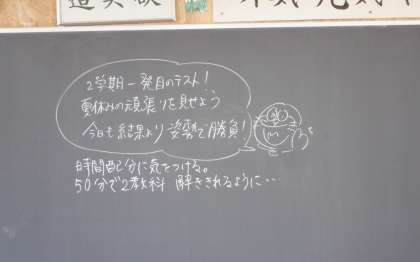 2学期一発目のテスト!
夏休みの頑張りを見せよう
今日も結果より姿勢で勝負!
時間配分に気をつける。
50分で2教科 解ききれるように‥